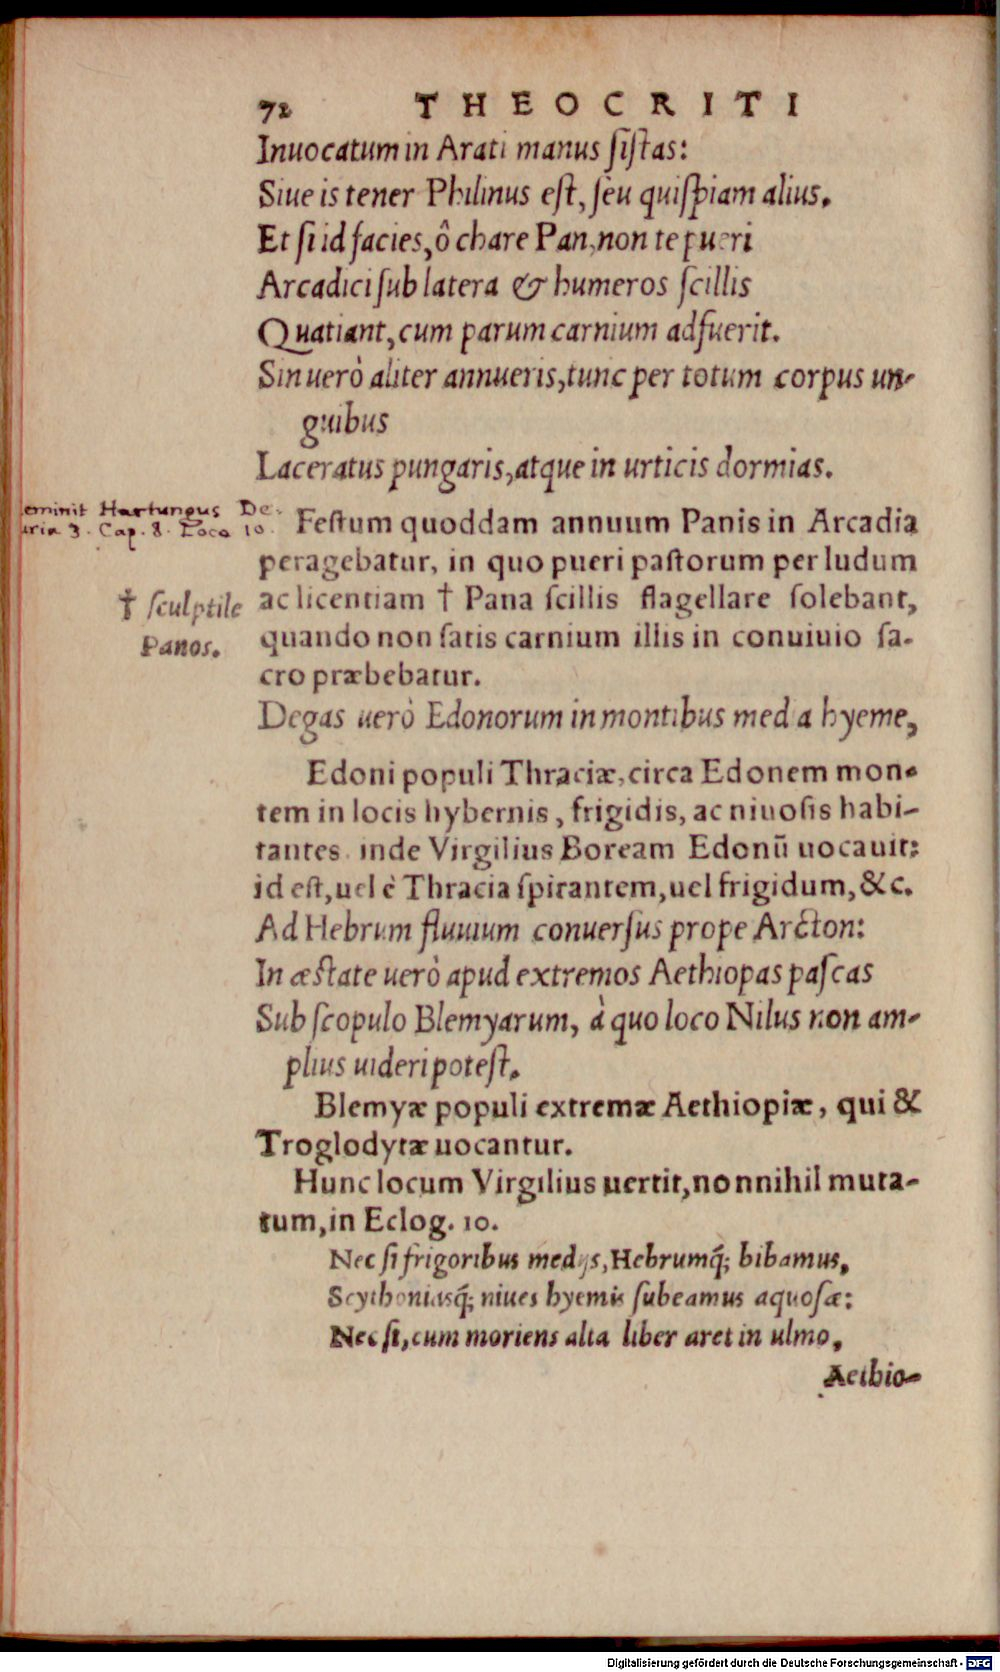 72 THEOCRITI
Inuocatum in Arati manus ſiſtas:
Siue is tener Philinus eſt, ſeu quiſpiam alius.
Et ſi id facies, ô chare Pan, non te pueri
Arcadici ſub latera & humeros ſcillis
Quatiant, cum parum carnium adfuerit.
Sin uerò aliter annueris, tunc per totum corpus un-
guibus
Laceratus pungaris, atque in urticis dormias.
eminit Hartungus De-
uria 3. Cap. 8. Loco 10.
Feſtum quoddam annuum Panis in Arcadia
peragebatur, in quo pueri paſtorum per ludum
ac licentiam † Pana ſcillis flagellare ſolebant,
† ſculptile
Panos.
quando non ſatis carnium illis in conuiuio ſa-
cro præbebatur.
Degas uerò Edonorum in montibus media hyeme,
Edoni populi Thraciæ, circa Edonem mon-
tem in locis hybernis, frigidis, ac niuoſis habi-
tantes. inde Virgilius Boream Edonū uocauit:
id eſt, uel è Thracia ſpirantem, uel frigidum, &c.
Ad Hebrum fluuium conuerſus prope Arcton:
In æſtate uerò apud extremos Aethiopas paſcas
Sub ſcopulo Blemyarum, à quo loco Nilus non am-
plius uideri poteſt.
Blemyæ populi extremæ Aethiopiæ, qui &
Troglodytæ uocantur.
Hunc locum Virgilius uertit, nonnihil muta-
tum, in Eclog. 10.
Nec ſi frigoribus medijs, Hebrumq́; bibamus,
Scythoniasq́; niues hyemis ſubeamus aquoſæ:
Nec ſi, cum moriens alta liber aret in ulmo,
Aethio-
Digitalisierung gefördert durch die Deutsche Forschungsgemeinschaft - DFG